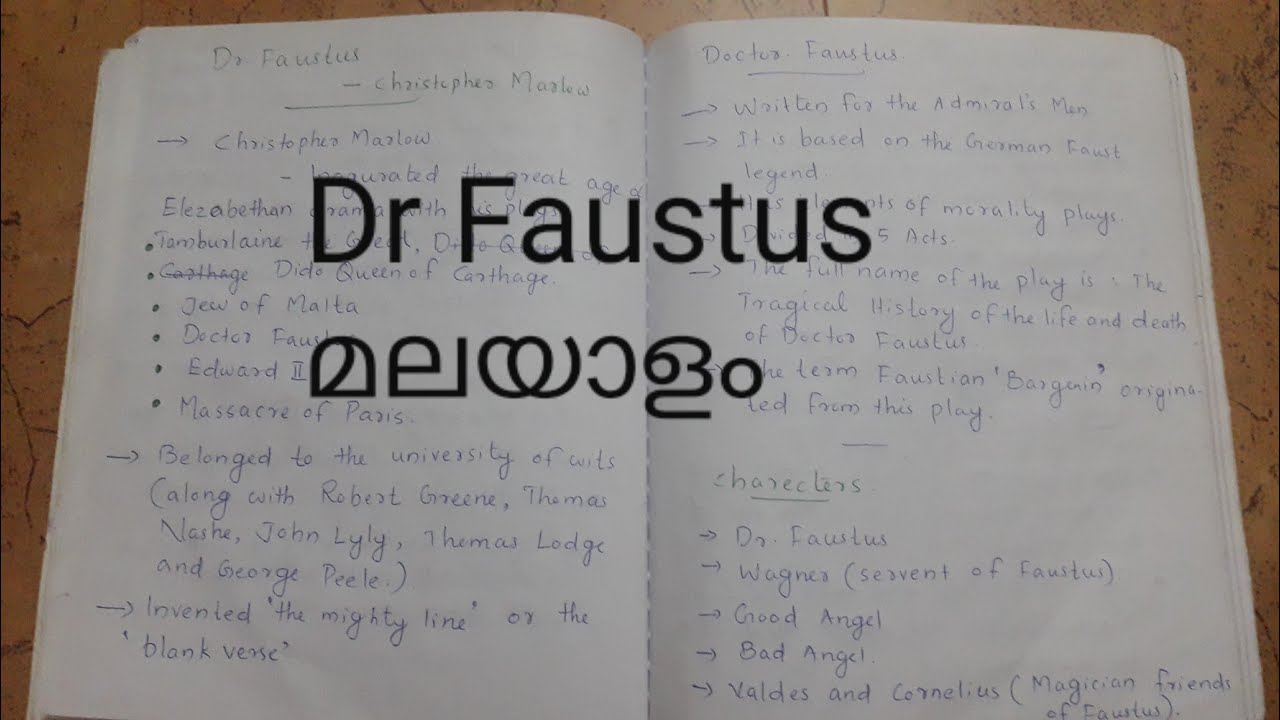 Dr Faustus
- Christopher Marlow
→ Christopher Marlow
- Inagurated the great age of
Elezabethan drama with his plays
• Tamburlaine the Great, Dido Queen of
• Carthage Dido Queen of Carthage.
• Jew of Malta
• Doctor Faustus
• Edward II
• Massacre of Paris.
→ Belonged to the university of wits
(along with Robert Greene, Thomas
Nashe, John Lyly, Thomas Lodge
and George Peele.)
→ Invented 'the mighty line' or the
'blank verse'
Doctor. Faustus.
→ Written for the Admiral's Men
→ It is based on the German Faust
legend.
→ Has elements of morality plays.
→ Divided in 5 Acts.
→ The full name of the play is : The
Tragical History of the life and death
of Doctor Faustus.
→ The term Faustian 'Bargain' origina-
ted from this play.
Charecters.
→ Dr. Faustus
→ Wagner (servent of Faustus)
→ Good Angel
→ Bad Angel.
→ Valdes and Cornelius (Magician friends
of Faustus).
Dr Faustus
മലയാളം